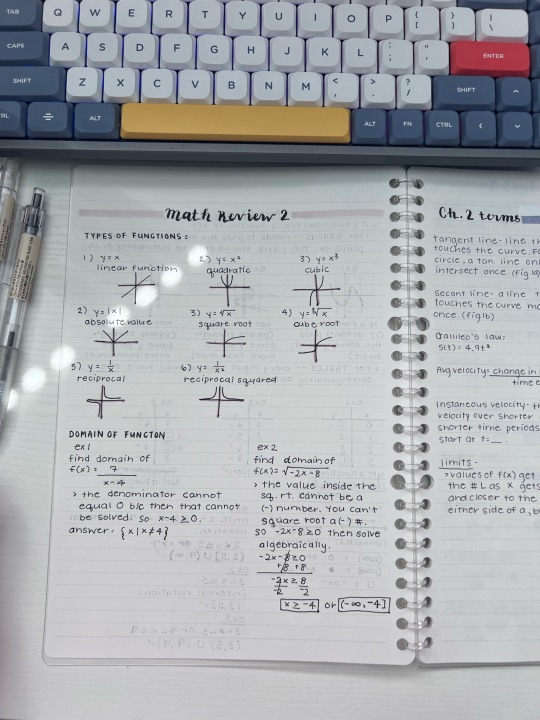 TAB Q W E R T Y U I O P { [ } ] | \
CAPS A S D F G H J K L : ; " ' ENTER
SHIFT Z X C V B N M < , > . ? / SHIFT
ALT ALT FN CTRL
Math Review 2
TYPES OF FUNCTIONS:
1) y=x
linear function
2) y=x²
quadratic
3) y=x³
cubic
2) y=|x|
absolute value
3) y=√x
square root
4) y=∛x
cube root
5) y=1/x
reciprocal
6) y=1/x²
reciprocal squared
DOMAIN OF FUNCTON
ex1
find domain of
f(x)= 7
x-4
> the denominator cannot
equal 0 b/c then that cannot
be solved. so x-4≥0.
answer: {x|x≠4}
ex2
find domain of
f(x)=√-2x-8
> the value inside the
sq. rt. cannot be a
(-) number. You can't
square root a (-) #.
so -2x-8≥0 then solve
algebraically.
-2x-8≥0
+8 +8
-2x≥8
-2 -2
x≥-4 or (-∞,-4]
Ch. 2 terms
tangent line- line th
touches the curve. Fo
circle, a tan line onl
intersect once (fig
secant line- a line t
touches the curve mo
once. (fig 1b)
Galileo's law:
s(t)=4.9t²
Avg velocity: change in
time e
Instaneous velocity- th
velocity over shorter
shorter time periods
start at t=__
limits-
>values of f(x) get
the # L as x gets
and closer to the
either side of a, b